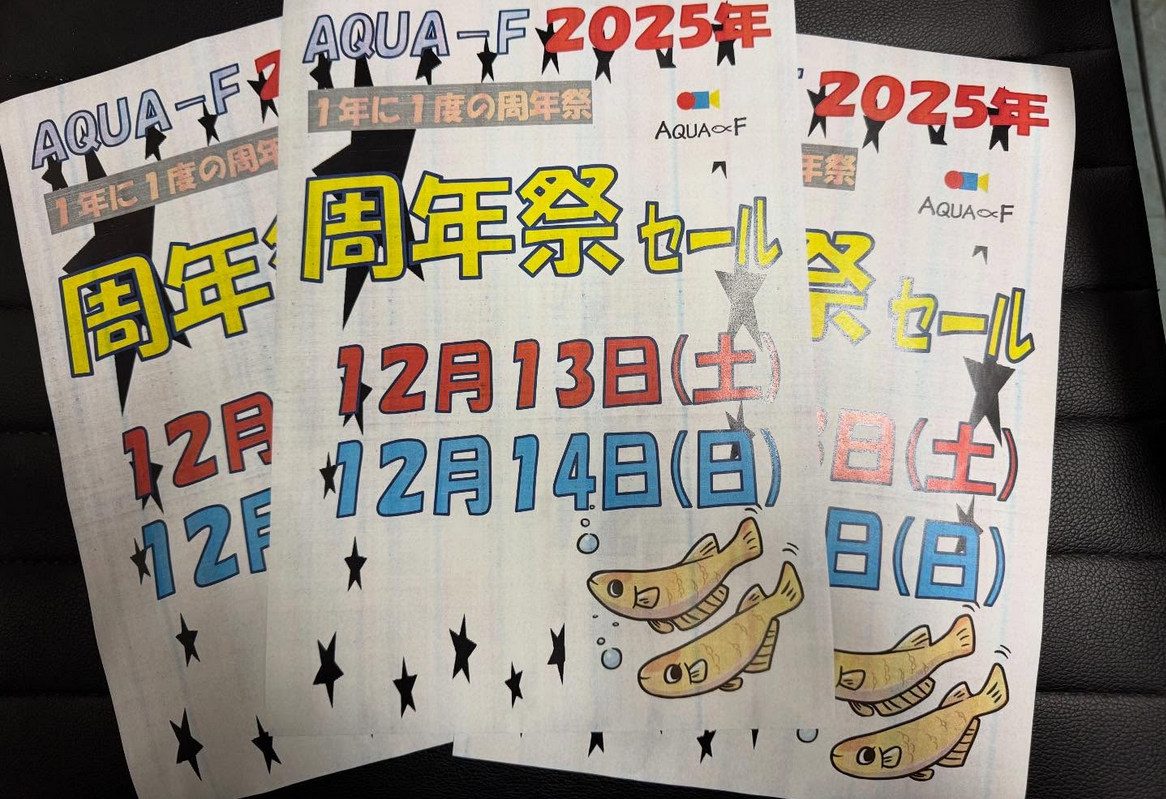 AQUA-F 2025年
1年に1度の周年祭
AQUA∝F
周年祭セール
12月13日(土)
12月14日(日)
AQUA-F 2
1年に1度の周年
周年
12月
12月
2025年
年祭
AQUA∝F
祭セール
日(土)
日(日)